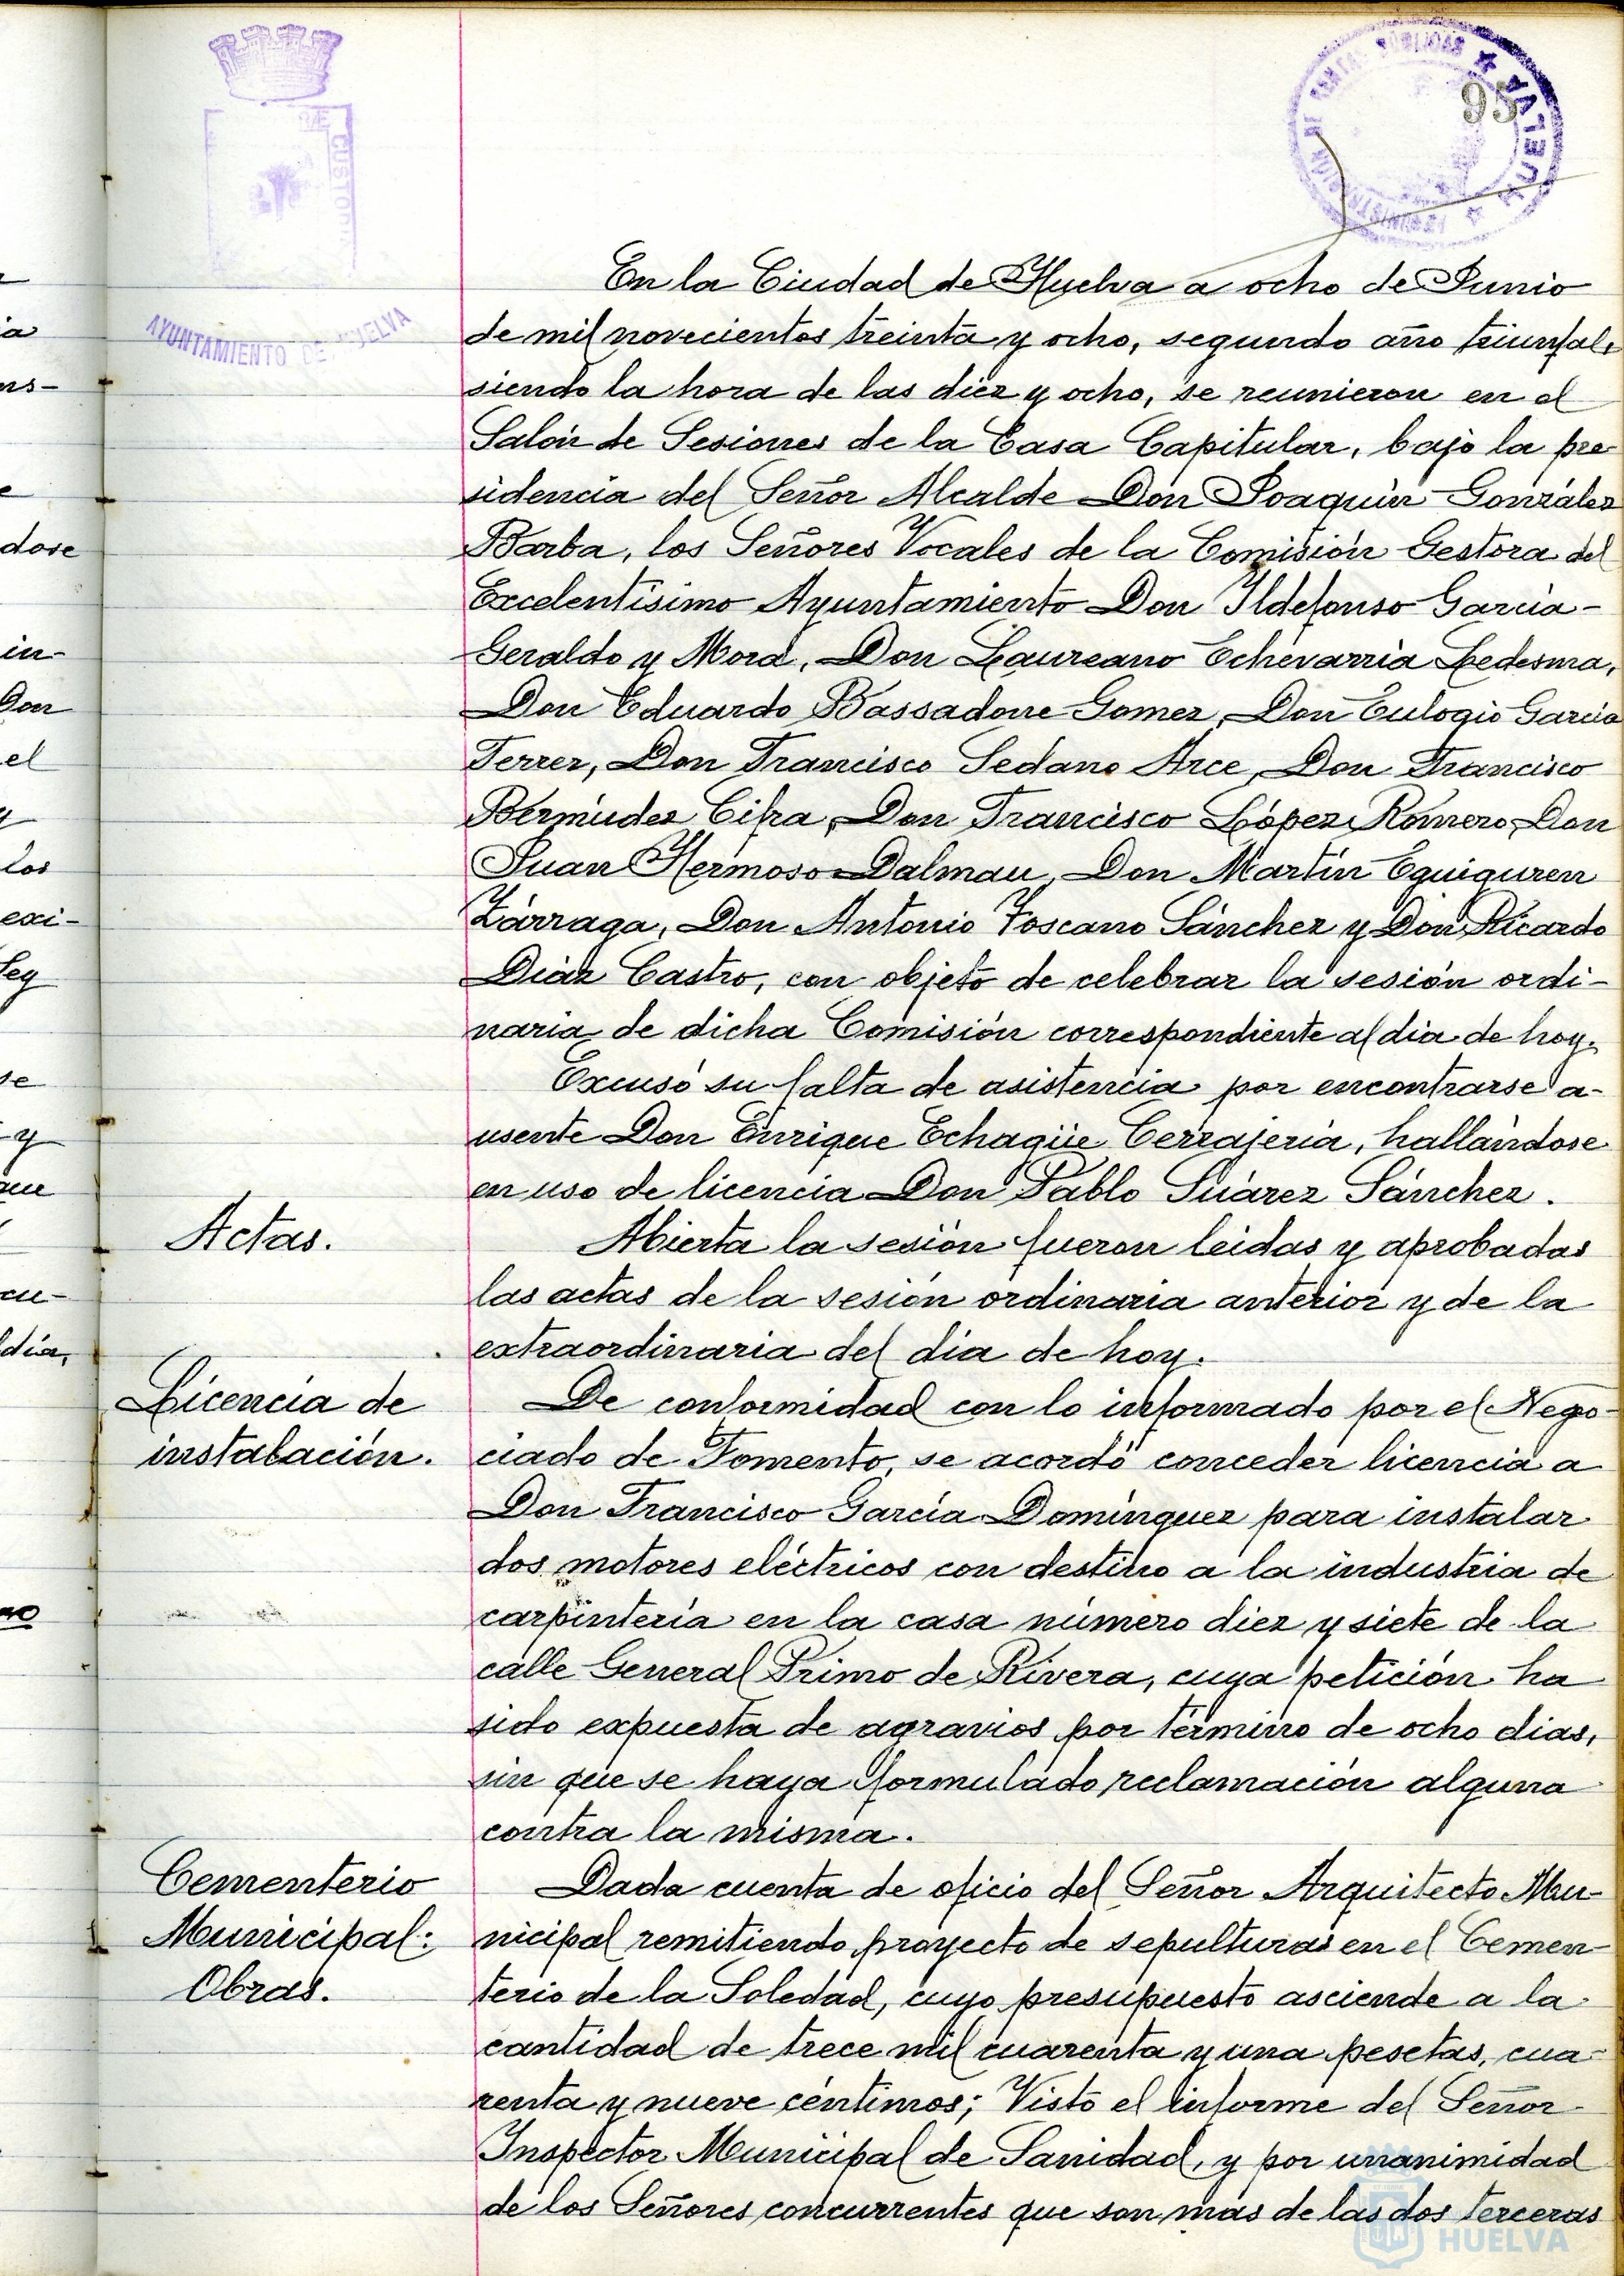 95
HUELVA
AYUNTAMIENTO DE HUELVA
En la Ciudad de Huelva a ocho de Junio
de mil novecientos treinta y ocho, segundo año triunfal,
siendo la hora de las diez y ocho, se reunieron en el
Salón de Sesiones de la Casa Capitular, bajo la pre-
sidencia del Señor Alcalde Don Joaquín González
Barba, los Señores Vocales de la Comisión Gestora del
Excelentísimo Ayuntamiento Don Ildefonso García-
Geraldo y Mora, Don Laureano Echevarría Ledesma,
Don Eduardo Bassadone Gomez, Don Eulogio García
Ferrer, Don Francisco Sedano Arce, Don Francisco
Bermúdez Cifra, Don Francisco López Romero, Don
Juan Hermoso Dalmau, Don Martín Eguiguren
Zárraga, Don Antonio Toscano Sánchez y Don Ricardo
Díaz Castro, con objeto de celebrar la sesión ordi-
naria de dicha Comisión correspondiente al día de hoy.
Excusó su falta de asistencia por encontrarse a-
usente Don Enrique Echagüe Cerrajería, hallándose
en uso de licencia Don Pablo Suárez Sánchez.
Actas.
Abierta la sesión fueron leidas y aprobadas
las actas de la sesión ordinaria anterior y de la
extraordinaria del día de hoy.
Licencia de
instalación.
De conformidad con lo informado por el Nego-
ciado de Fomento, se acordó conceder licencia a
Don Francisco García Domínguez para instalar
dos motores eléctricos con destino a la industria de
carpintería en la casa número diez y siete de la
calle General Primo de Rivera, cuya petición ha
sido expuesta de agravios por término de ocho dias,
sin que se haya formulado reclamación alguna
contra la misma.
Cementerio
Municipal:
Obras.
Dada cuenta de oficio del Señor Arquitecto Mu-
nicipal remitiendo proyecto de sepulturas en el Cemen-
terio de la Soledad, cuyo presupuesto asciende a la
cantidad de trece mil cuarenta y una pesetas, cua-
renta y nueve céntimos; Visto el informe del Señor
Inspector Municipal de Sanidad, y por unanimidad
de los Señores concurrentes que son más de las dos terceras
HUELVA